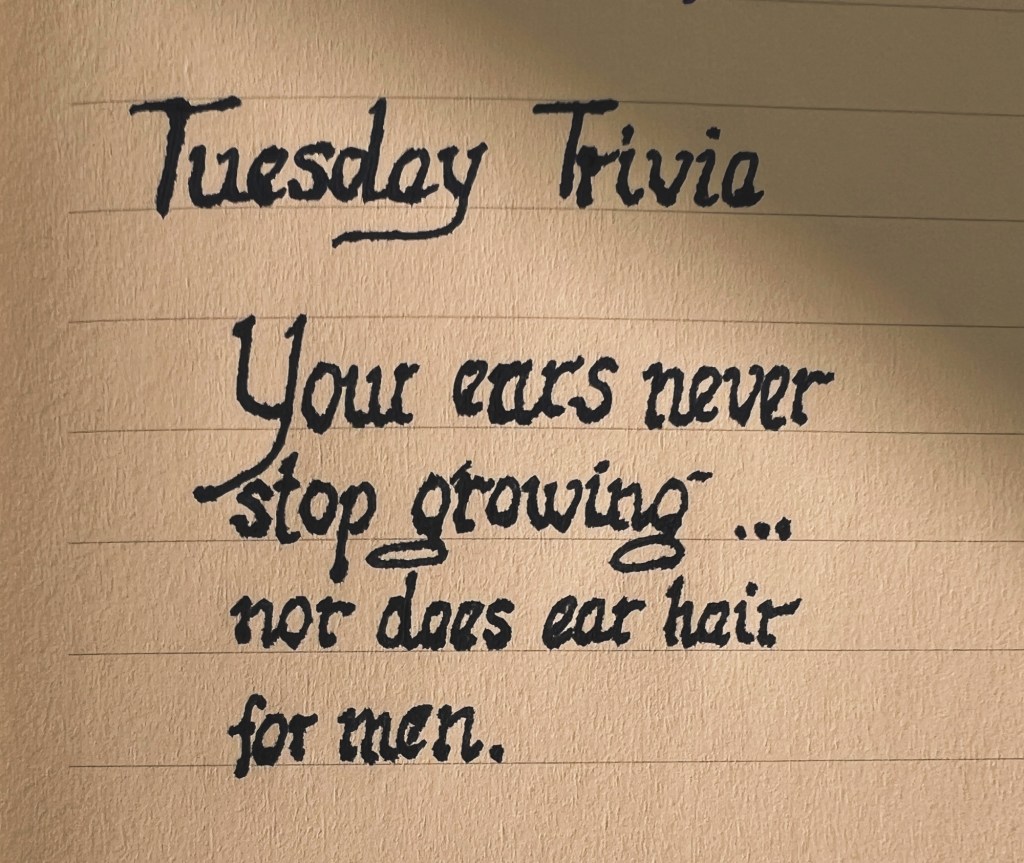 Tuesday Trivia
Your ears never
stop growing ...
nor does ear hair
for men.